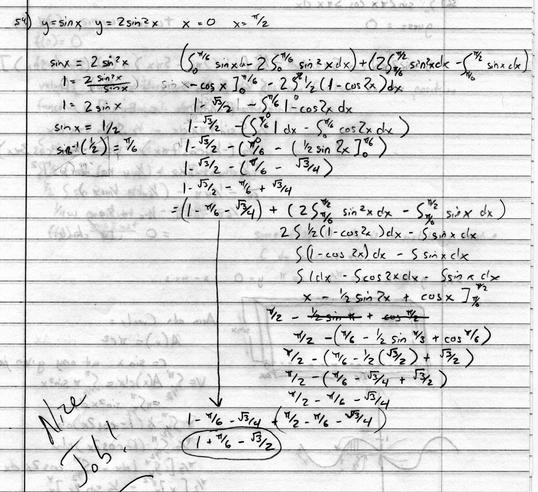 54) y=sinx y=2sin²x x=0 x=π/2
sinx = 2sin²x
1 = 2sin²x/sinx
1 = 2sinx
sinx = 1/2
sin⁻¹(1/2) = π/6
(∫₀^π/6 sinxdx - 2∫₀^π/6 sin²xdx) + (2∫π/6^π/2 sin²xdx - ∫π/6^π/2 sinxdx)
-cosx]₀^π/6 - 2∫ 1/2(1-cos2x)dx
1 - √3/2 - ∫₀^π/6 1-cos2x dx
1 - √3/2 - (∫₀^π/6 1dx - ∫₀^π/6 cos2x dx)
1 - √3/2 - (π/6 - (1/2 sin2x]₀^π/6)
1 - √3/2 - (π/6 - √3/4)
1 - √3/2 - π/6 + √3/4
= (1 - π/6 - √3/4) + (2∫π/6^π/2 sin²x dx - ∫π/6^π/2 sinx dx)
2∫ 1/2(1-cos2x)dx - ∫sinxdx
∫(1-cos2x)dx - ∫sinxdx
∫1dx - ∫cos2xdx - ∫sinxdx
x - 1/2 sin2x + cosx]π/6^π/2
π/2 - 1/2 sinπ + cosπ/2
π/2 - (π/6 - 1/2 sinπ/3 + cosπ/6)
π/2 - (π/6 - 1/2(√3/2) + √3/2)
π/2 - (π/6 - √3/4 + √3/2)
π/2 - π/6 - √3/4
1 - π/6 - √3/4 + (π/2 - π/6 - √3/4)
1 + π/6 - √3/2
Nice
Job!